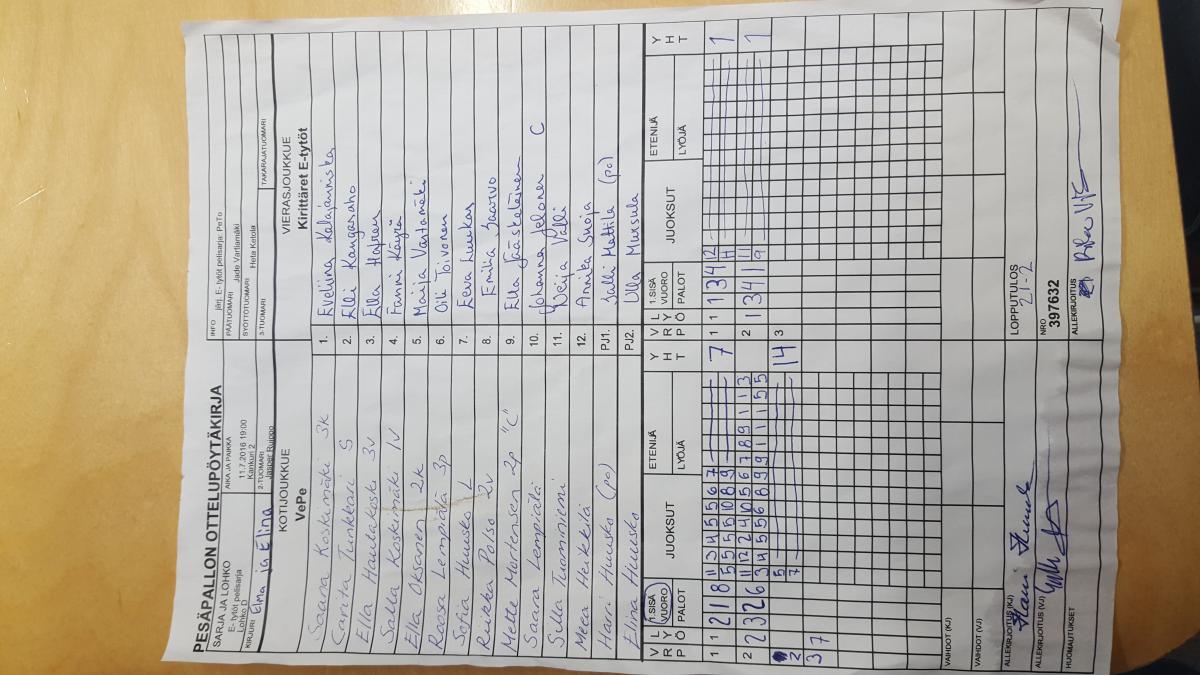 PESÄPALLON OTTELUPÖYTÄKIRJA
SARJA JA LOHKO
E- tytöt pelisarja
Lohko D
AIKA JA PAIKKA
11.7.2016 19:00
Kankuri 2
INFO järj. E- tytöt pelisarja: PeTo
PÄÄTUOMARI Jade Vartiamäki
SYÖTTÖTUOMARI Heta Ketola
KIRJURI Elma ja Elina
2-TUOMARI Jasper Ruippo
3-TUOMARI
TAKARAJATUOMARI
KOTIJOUKKUE
VePe
VIERASJOUKKUE
Kirittäret E-tytöt
Saana Koskamäki 3k 1. Eveliina Kalajanniska
Carita Tunkkari S 2. Elli Kangasaho
Ella Hautakoski 3v 3. Ella Hafren
Salla Koskimäki 1v 4. Fanni Käyrä
Ella Oksanen 2k 5. Maija Vartamäki
Roosa Lempiälä 3p 6. Oili Toivonen
Sofia Huusko L 7. Eeva Luukas
Riikka Polso 2v 8. Emilia Saarvo
Mette Mortensen 2p "C" 9. Ella Jääskeläinen
Saara Lempiälä 10. Johanna Jelonen C
Sulla Tuominiemi 11. Neija Valli
Meea Heikkilä 12. Annika Suoja
Harri Huusko (po) PJ1. Salli Mattila (po)
Elina Huusko PJ2. Ulla Mursula
V R P L Y Ö 1.SISÄ VUORO PALOT JUOKSUT ETENIJÄ LYÖJÄ Y H T V R P L Y Ö 1.SISÄ VUORO PALOT JUOKSUT ETENIJÄ LYÖJÄ Y H T
1 1 2 1 8 11 3 4 5 5 6 7 7 1 1 1 3 4 12 1
5 5 5 5 10 8 9 11
2 2 3 2 6 11 12 2 4 10 5 6 7 8 9 1 1 3 2 1 3 4 1 11 1
3 4 5 5 6 8 9 9 1 1 1 5 5 9
2 5 14 3
7
3 7
VAIHDOT (KJ)
VAIHDOT (VJ)
ALLEKIRJOITUS (KJ)
LOPPUTULOS
21-2
ALLEKIRJOITUS (VJ)
NRO
397632
HUOMAUTUKSET
ALLEKIRJOITUS